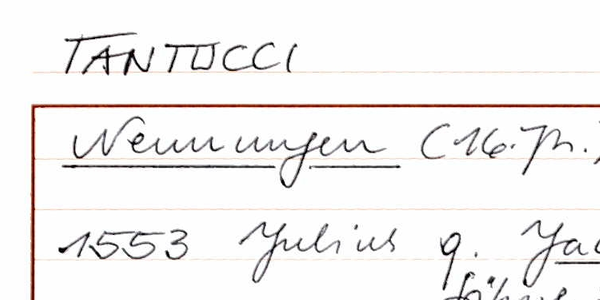 TANTUCCI
Nennungen (16. Jh.)
1553 Julius q. Jac
Söhne